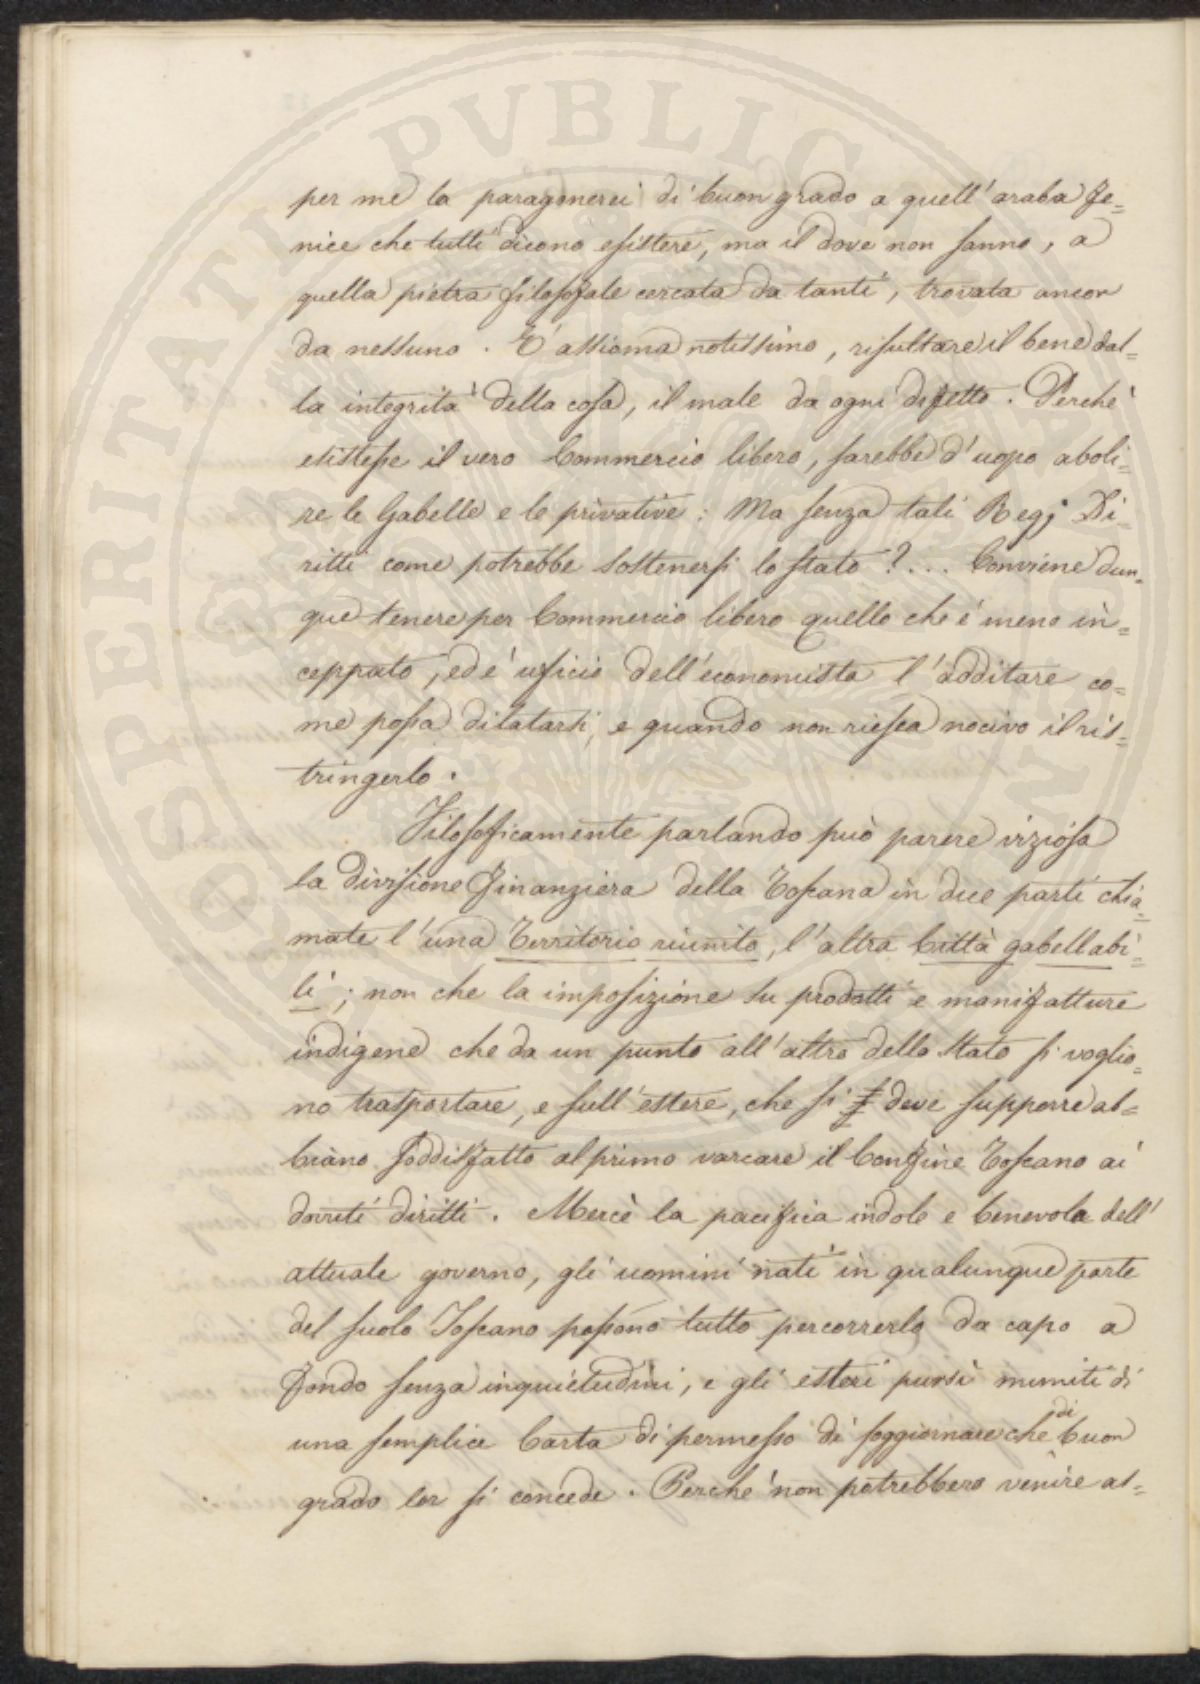 per me la paragonerei di buon grado a quell'araba fe=
nice che tutti dicono esistere, ma il dove non sanno, a
quella pietra filosofale cercata da tanti, trovata ancor
da nessuno. È assioma notissimo, risultare il bene dal=
la integrità della cosa, il male da ogni difetto. Perchè
esistesse il vero Commercio libero, sarebbe d'uopo aboli=
re le Gabelle e le privative: Ma senza tali Regj Di=
ritti come potrebbe sostenersi lo stato?... Conviene dun=
que tenere per Commercio libero quello che è meno in=
ceppato, ed è uficio dell'economista l'additare co=
me possa dilatarsi, e quando non riesca nocivo il ris=
tringerlo.
Filosoficamente parlando può parere viziosa
la divisione finanziera della Toscana in due parti chia=
mate l'una Territorio riunito, l'altra Città gabellabi=
li; non che la imposizione su prodotti e manifatture
indigene che da un punto all'altro dello Stato si voglio=
no trasportare, e sull'estere, che si deve supporre ab=
biano soddisfatto al primo varcare il Confine Toscano ai
dovuti diritti. Mercè la pacifica indole e benevola dell'
attuale governo, gli uomini nati in qualunque parte
del suolo Toscano possono tutto percorrerlo da capo a
fondo senza inquietudini, e gli esteri pursì muniti di
una semplice Carta di permesso di soggiornare che di buon
grado lor si concede. Perchè non potrebbero venire as=
PROSPERITATI PVBLICAE